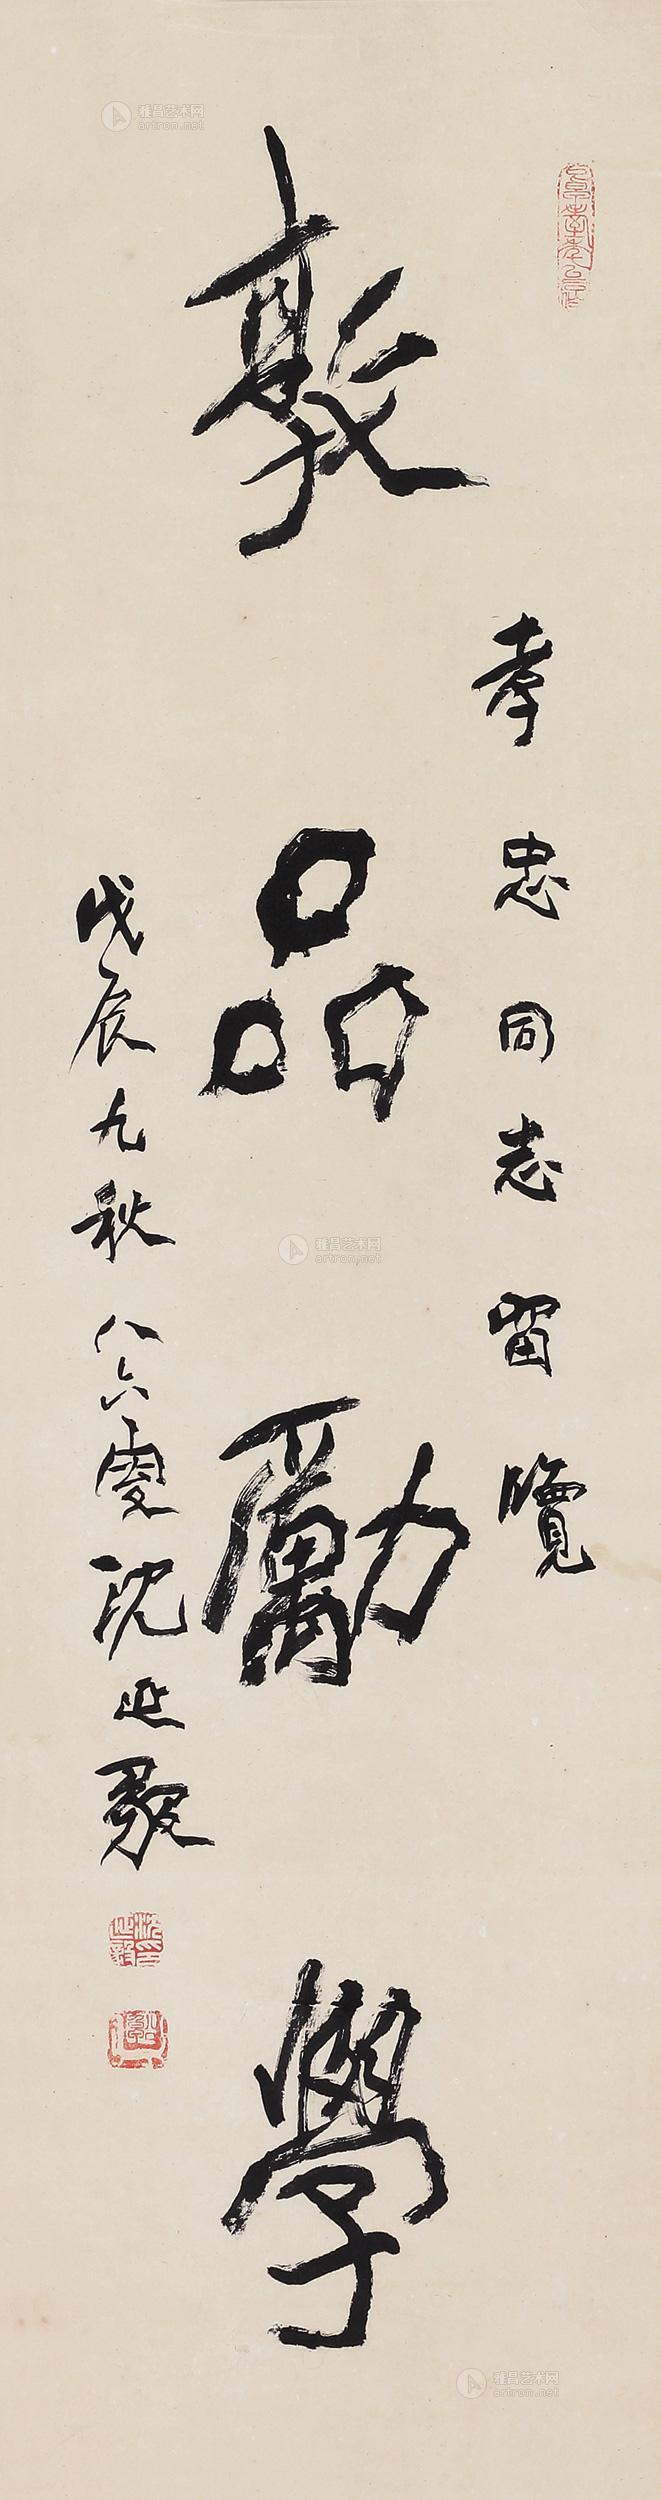 孝忠同志留覽
敦品勵學
戊辰九秋八六叟沈延毅
雅昌艺术网
artron.net
雅昌艺术网
artron.net
雅昌艺术网
artron.net